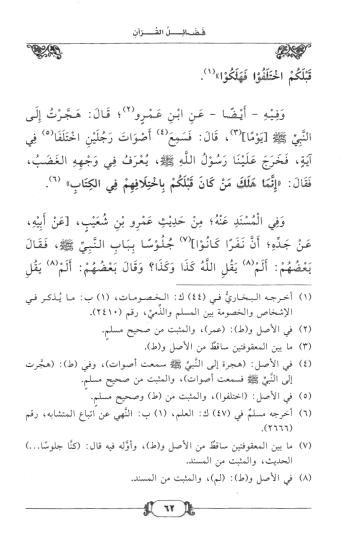 فَضَائِلُ القُرْآنِ
قَبْلَكُمْ اخْتَلَفُوا فَهَلَكُوا»(١).
وَفِيْهِ - أَيْضًا - عَنِ ابْنِ عَمْرٍو(٢)؛ قَالَ: هَجَّرْتُ إِلَى
النَّبِيِّ ﷺ [يَوْمًا](٣)، قَالَ: فَسَمِعَ(٤) أَصْوَاتَ رَجُلَيْنِ اخْتَلَفَا(٥) فِي
آيَةٍ، فَخَرَجَ عَلَيْنَا رَسُوْلُ اللَّهِ ﷺ، يُعْرَفُ فِي وَجْهِهِ الغَضَبُ،
فَقَالَ: «إِنَّمَا هَلَكَ مَنْ كَانَ قَبْلَكُمْ بِاخْتِلَافِهِمْ فِي الكِتَابِ» (٦).
وَفِي الْمُسْنَدِ عَنْهُ؛ مِنْ حَدِيْثِ عَمْرِو بْنِ شُعَيْبٍ، [عَنْ أَبِيْهِ،
عَنْ جَدِّهِ؛ أَنَّ نَفَرًا كَانُوا](٧) جُلُوْسًا بِبَابِ النَّبِيِّ ﷺ، فَقَالَ
بَعْضُهُمْ: أَلَمْ(٨) يَقُلِ اللَّهُ كَذَا وَكَذَا؟ وَقَالَ بَعْضُهُمْ: أَلَمْ(٨) يَقُلِ
(١) أخرجه البخاريُّ في (٤٤) ك: الخصومات، (١) ب: ما يُذكر في
الإشخاص والخصومة بين المسلم والذِّمي، رقم (٢٤١٠).
(٢) في الأصل و(ط): (عمر)، والمثبت من صحيح مسلم.
(٣) ما بين المعقوفتين ساقطٌ من الأصل و(ط).
(٤) في الأصل: (هجرة إلى النَّبيِّ ﷺ سمعت أصوات)، وفي (ط): (هجَّرت
إلى النَّبيِّ ﷺ فسمعت أصوات)، والمثبت من صحيح مسلم.
(٥) في الأصل: (اختلفوا)، والمثبت من (ط) وصحيح مسلم.
(٦) أخرجه مسلمٌ في (٤٧) ك: العلم، (١) ب: النَّهي عن اتِّباع المتشابه، رقم
(٢٦٦٦).
(٧) ما بين المعقوفتين ساقطٌ من الأصل و(ط)، وأوَّله فيه قال: (كنَّا جلوسًا...)
الحديث، والمثبت من المسند.
(٨) في الأصل و(ط): (لم)، والمثبت من المسند.
٦٢